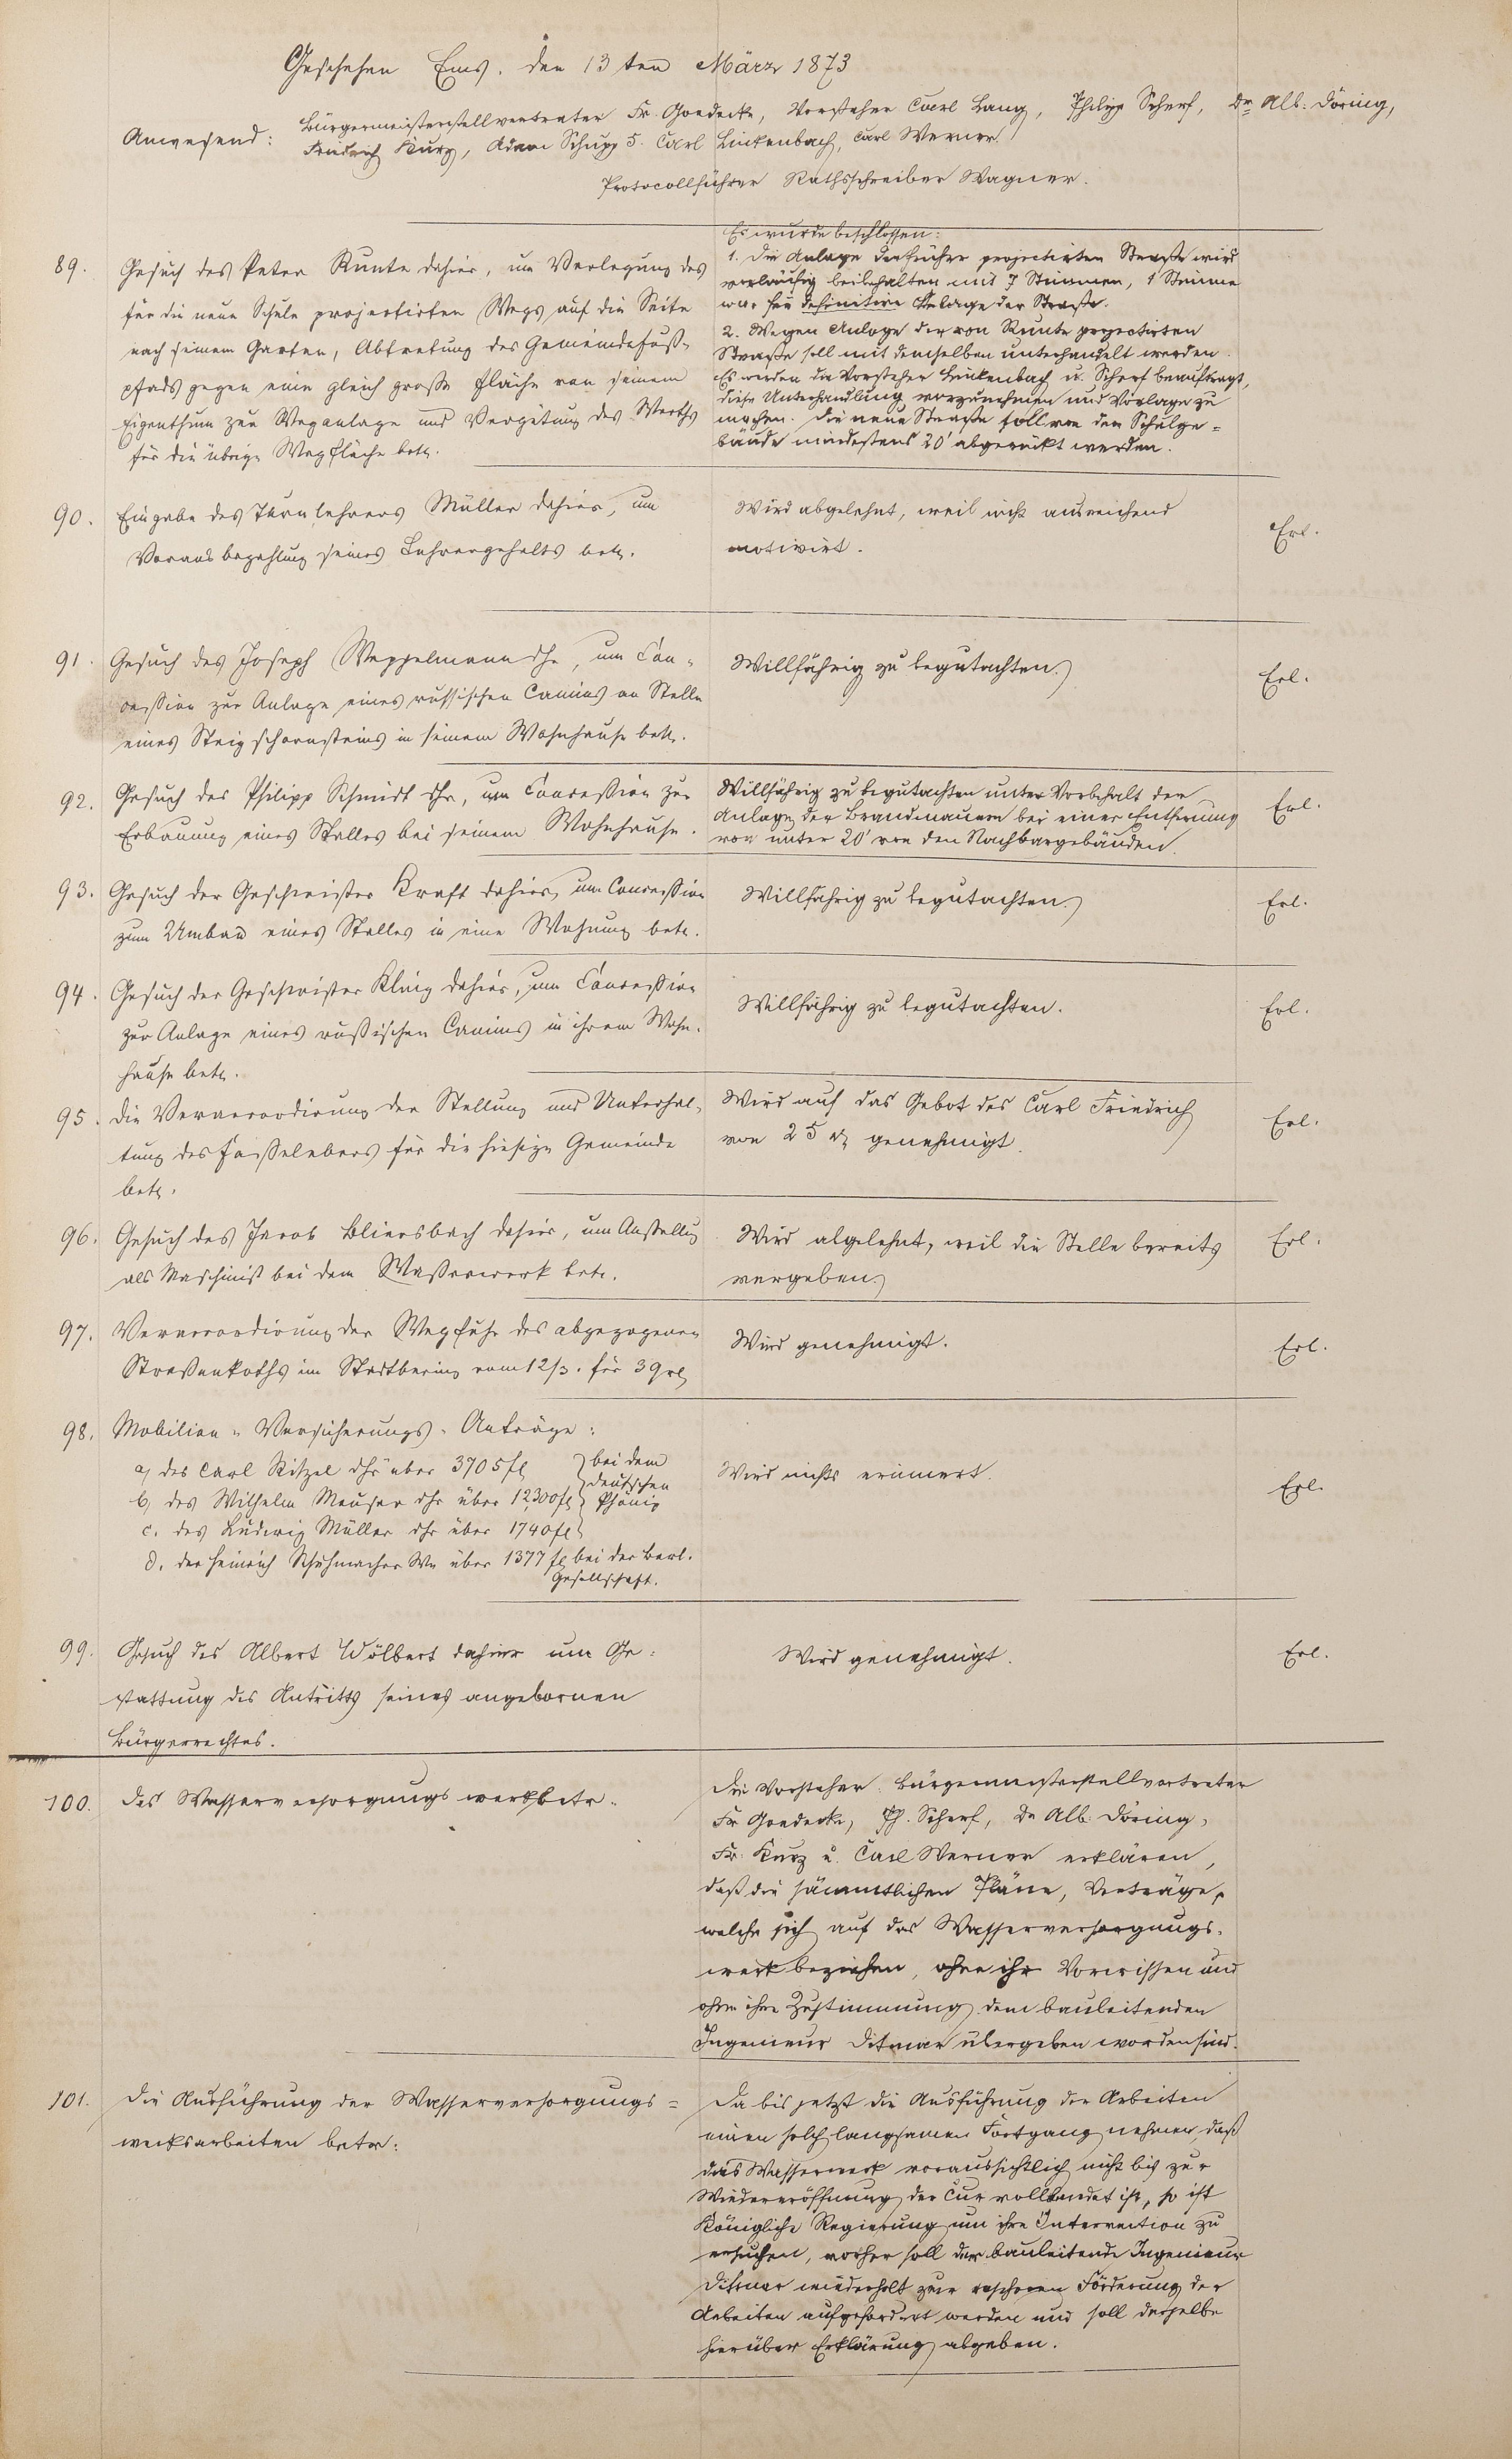 Geschehen Ems, den 13ten März 1873
Anwesend: Bürgermeisterstellvertreter Fr. Goedecke, Vorsteher Carl Lang, Philipp Scherf, Dr. Alb. Döring,
Friedrich Kurz, Adam Schupp 5. Carl Linkenbach, Carl Werner.
Protocollführer Rathsschreiber Wagner.
89. Gesuch des Peter Runte dahier, um Verlegung des
für die neue Schule projectirten Wegs auf die Seite
nach seinem Garten, Abtretung des Gemeindefuß-
pfads gegen eine gleich große Fläche von seinem
Eigenthum zur Weganlage und Vergütung des Werths
für die übrige Wegfläche betr.
Es wurde beschlossen:
1. Die Anlage der früher projectirten Straße wird
vorläufig beibehalten mit 7 Stimmen, 1 Stimme
war für definitive Anlage der Straße.
2. Wegen Anlage der von Runte projectirten
Straße soll mit demselben unterhandelt werden.
Es werden die Vorsteher Linkenbach u. Scherf beauftragt,
diese Unterhandlung vorzunehmen und Vorlage zu
machen. Die neue Straße soll von dem Schulge=
bäude mindestens 20' abgerückt werden.
90. Eingabe des Turnlehrers Müller dahier, um
Vorausbezahlung seines Lehrergehalts betr.
Wird abgelehnt, weil nicht ausreichend
motivirt.
Erl.
91. Gesuch des Joseph Weppelmann dhr, um Con-
cession zur Anlage eines russischen Camins an Stelle
eines Steigschornsteins in seinem Wohnhause betr.
Willfährig zu begutachten.
Erl.
92. Gesuch des Philipp Schmidt dhr, um Concession zur
Erbauung eines Stalles bei seinem Wohnhause.
Willfährig zu begutachten unter Vorbehalt der
Anlage der Brandmauern bei einer Entfernung
von unter 20' von den Nachbargebäuden.
Erl.
93. Gesuch der Geschwister Kraft dahier, um Concession
zum Umbau eines Stalles in eine Wohnung betr.
Willfährig zu begutachten.
Erl.
94. Gesuch der Geschwister Kling dahier, um Concession
zur Anlage eines russischen Camins in ihrem Wohn-
hause betr.
Willfährig zu begutachten.
Erl.
95. Die Veraccordirung der Stellung und Unterhal-
tung des Fasselebers für die hiesige Gemeinde
betr.
Wird auf das Gebot des Carl Friedrich
von 25 rl genehmigt.
Erl.
96. Gesuch des Jacob Bliersbach dahier, um Anstellung
als Maschinist bei dem Wasserwerk betr.
Wird abgelehnt, weil die Stelle bereits
vergeben.
Erl.
97. Veraccordirung der Wegfuhr des abgezogenen
Straßenkoths im Stadtbering vom 12/3. für 39 rl
Wird genehmigt.
Erl.
98. Mobilien-Versicherungs-Anträge:
a, des Carl Ritzel dhr über 3705 fl
b, des Wilhelm Meuser dhr über 12,300 fl
c. des Ludwig Müller dhr über 1740 fl
bei dem
deutschen
Phönix
d. der Heinrich Schuhmacher Ww über 1377 fl bei der Berl.
Gesellschaft.
Wird nichts erinnert.
Erl.
99. Gesuch des Albert Wölbert dahier um Ge-
stattung des Antritts seines angebornen
Bürgerrechtes.
Wird genehmigt.
Erl.
100. Das Wasserversorgungswerk betr.
Die Vorsteher: Bürgermeisterstellvertreter
Fr. Goedecke, Ph. Scherf, Dr Alb. Döring,
Fr. Kurz u. Carl Werner erklären,
daß die sämmtlichen Pläne, Verträge,
welche sich auf das Wasserversorgungs-
werk beziehen, ohne ihr Vorwissen und
ohne ihre Zustimmung dem bauleitenden
Ingenieur Ditmar übergeben worden sind.
101. Die Ausführung der Wasserversorgungs=
werksarbeiten betr:
Da bis jetzt die Ausführung der Arbeiten
einen solch langsamen Fortgang nehmen, daß
das Wasserwerk voraussichtlich nicht bis zur
Wiedereröffnung der Cur vollendet ist, so ist
Königliche Regierung um ihre Intervention zu
ersuchen, vorher soll der bauleitende Ingenieur
Ditmar wiederholt zur rascheren Förderung der
Arbeiten aufgefordert werden und soll derselbe
hierüber Erklärung abgeben.